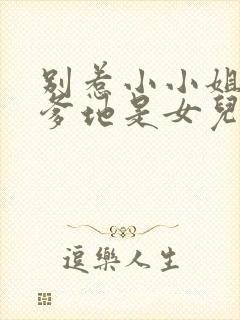 别惹小小姐
爹地是女兒
逗樂人生